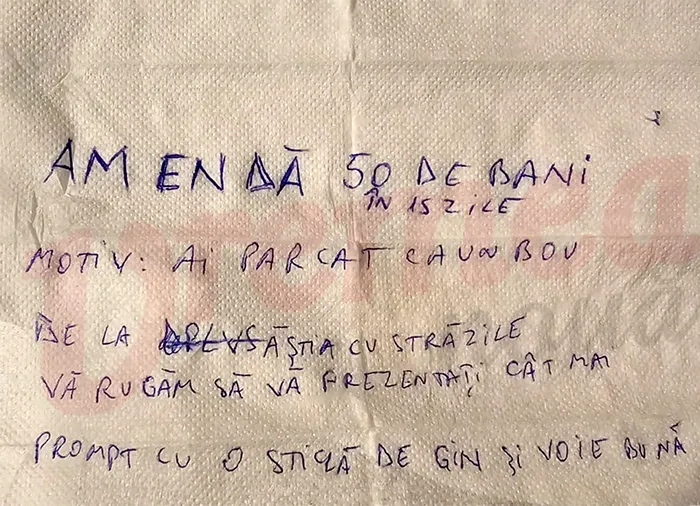 AMENDĂ 50 DE BANI
ÎN 15 ZILE
MOTIV: AI PARCAT CA UN BOU
DE LA ĂȘTIA CU STRĂZILE
VĂ RUGĂM SĂ VĂ PREZENTAȚI CÂT MAI
PROMPT CU O STICLĂ DE GIN ȘI VOIE BUNĂ